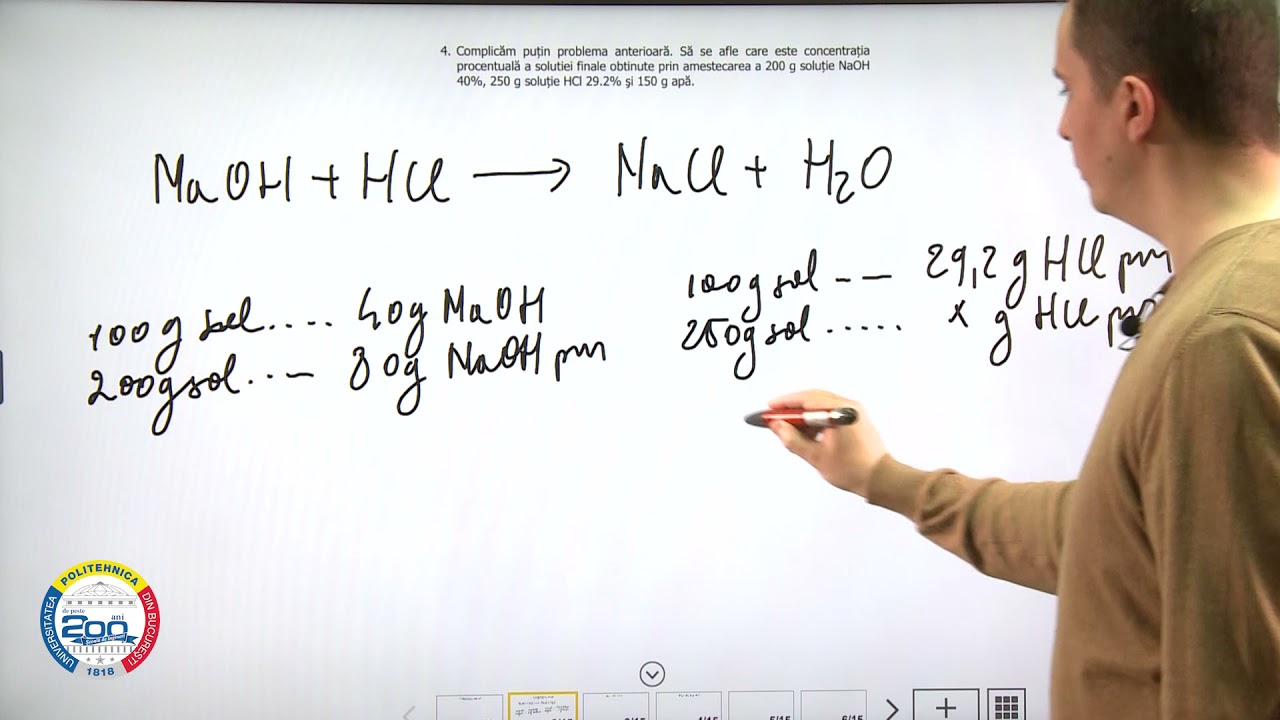 4. Complicăm puțin problema anterioară. Să se afle care este concentrația
procentuală a solutiei finale obtinute prin amestecarea a 200 g soluție NaOH
40%, 250 g soluție HCl 29.2% și 150 g apă.
NaOH + HCl → NaCl + H2O
100 g sol.... 40g NaOH
200g sol..-- 80g NaOH pur
100g sol -- 29,2 g HCl pur
250g sol ..... x g HCl
UNIVERSITATEA POLITEHNICA DIN BUCUREȘTI
de peste 200 ani
1818